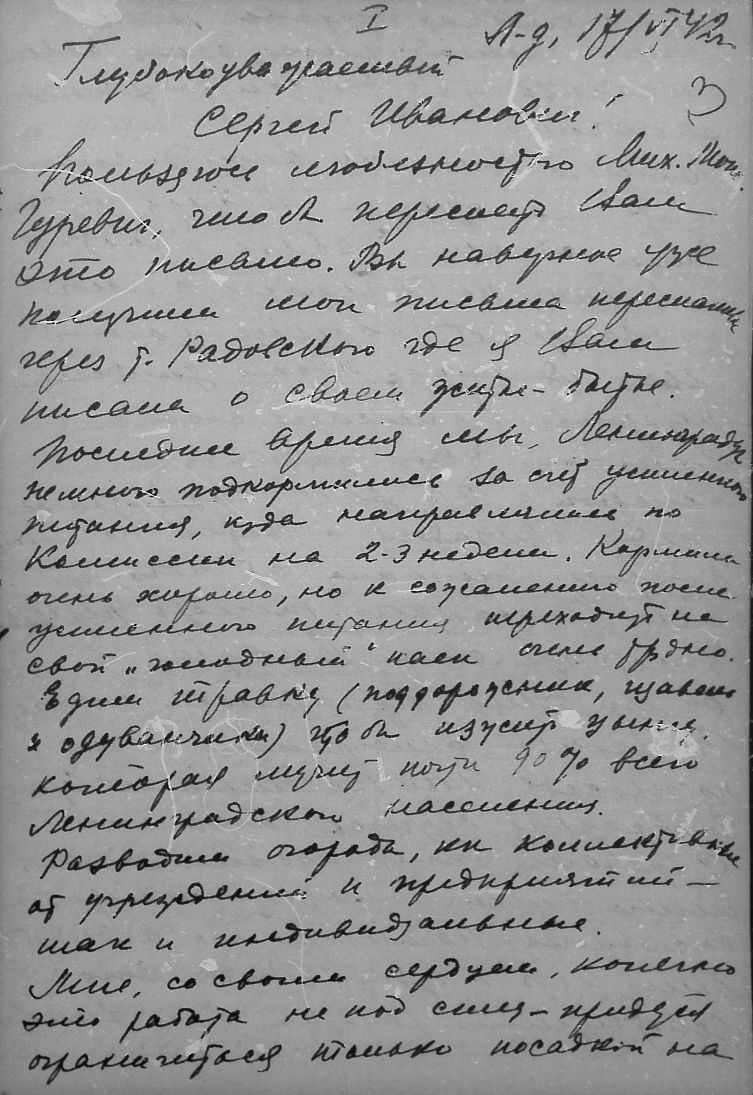 I
Л-д, 17/VI 42 г.
Глубокоуважаемый
3
Сергей Иванович!
Пользуюсь любезностью Мих.
Гуревич, чтоб переслать Вам
это письмо. Вы наверное уже
получили мои письма
через т. Радовского где я Вам
писала о своем житье-бытье.
Последнее время мы, Ленинградцы
немного подкормились за счет усиленного
питания, куда направлялись по
Комиссии на 2-3 недели. Кормили
очень хорошо, но к сожалению после
усиленного питания переходить на
свой „голодный" паек очень трудно.
Едим травку (поддорожник, щавель
и одуванчики) чтоб изжить цынгу,
которая мучит почти 90% всего
Ленинградского населения.
Разводим огороды, как коллективные
от учреждений и предприятий –
так и индивидуальные.
Мне, со своим сердцем, конечно
эта работа не под силу – придется
ограничиться только посадкой на